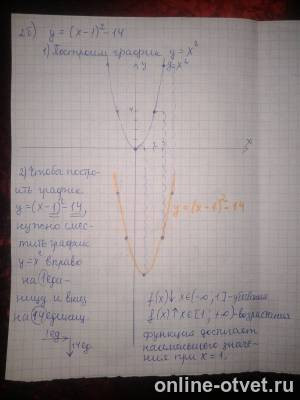 2б) y = (x-1)² - 14
1) Построим график y = x²
y
y = x²
x
2) Чтобы постро-
ить график
y = (x-1)² - 14,
нужно смес-
тить график
y = x² вправо
на 1 еди-
ницу и вниз
на 14 единиц.
1 ед.
14 ед.
y = (x-1)² - 14
f(x)↓ x∈(-∞; 1] - убывания
f(x)↑ x∈[1; +∞) - возрастания
функция достигает
наименьшего значе-
ния при x = 1.
online-otvet.ru